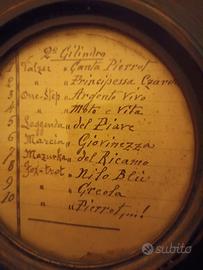 2º Cilindro
1 Valzer „ Canta Pierrot
2 „ „ Principessa Czarda
3 One-Step „ Argento Vivo
4 „ „ Moto e Vita
5 Leggenda „ del Piave
6 Marcia „ Giovinezza
7 Mazurka „ del Ricamo
8 Fox-trot „ Nilo Blu
9 „ „ Creola
10 „ „ Pierrot
subito